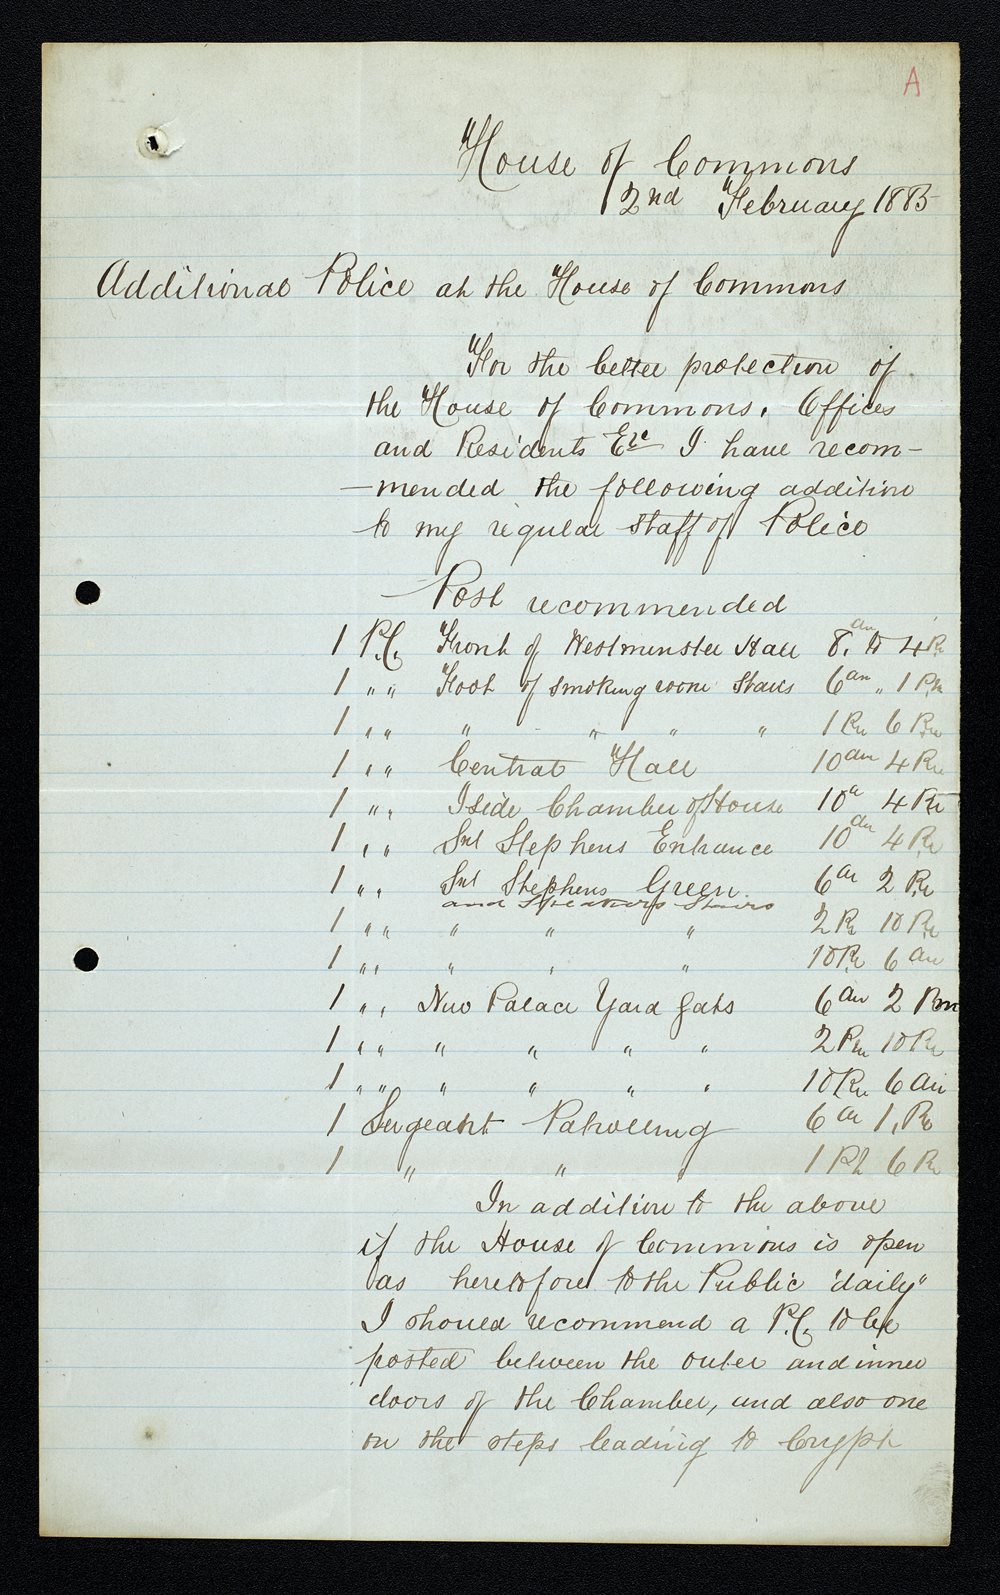 A
House of Commons
2nd February 1885
Additional Police at the House of Commons
For the better protection of
the House of Commons, Offices
and Residents &c I have recom-
-mended the following addition
to my regular staff of Police
Post recommended
1 P.C. Front of Westminster Hall 8 am to 4 Pm
1 " " Foot of smoking room Stairs 6 am " 1 Pm
1 " " " " " " 1 Pm 6 Pm
1 " " Central Hall 10 am 4 Pm
1 " " Iside Chamber of House 10 a 4 Pm
1 " " Snt Stephens Entrance 10 am 4 Pm
1 " " Snt Stephens Green 6 am 2 Pm
and Speakers Stairs
1 " " " " " 2 Pm 10 Pm
1 " " " " " 10 Pm 6 am
1 " " New Palace Yard Gates 6 am 2 Pm
1 " " " " " " 2 Pm 10 Pm
1 " " " " " " 10 Pm 6 am
1 Sergeant Patrolling 6 am 1 Pm
1 " " 1 Pm 6 Pm
In addition to the above
if the House of Commons is open
as heretofore to the Public "daily"
I should recommend a P.C. to be
posted between the outer and inner
doors of the Chamber, and also one
on the steps leading to Crypt